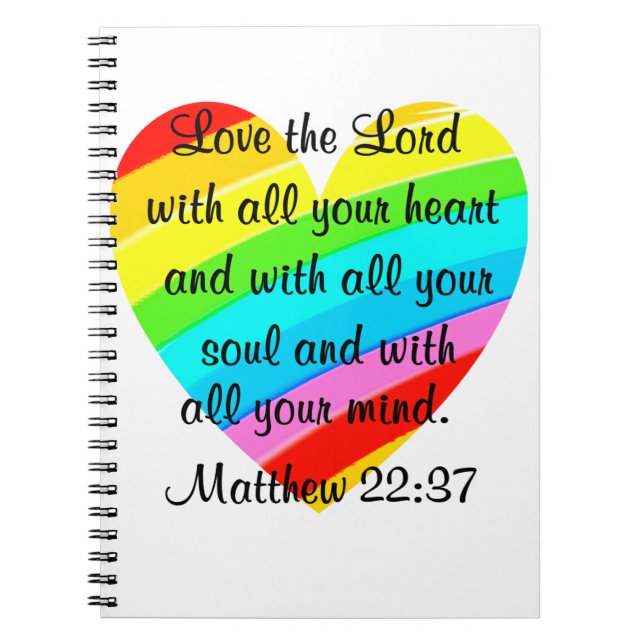 Love the Lord
with all your heart
and with all your
soul and with
all your mind.
Matthew 22:37